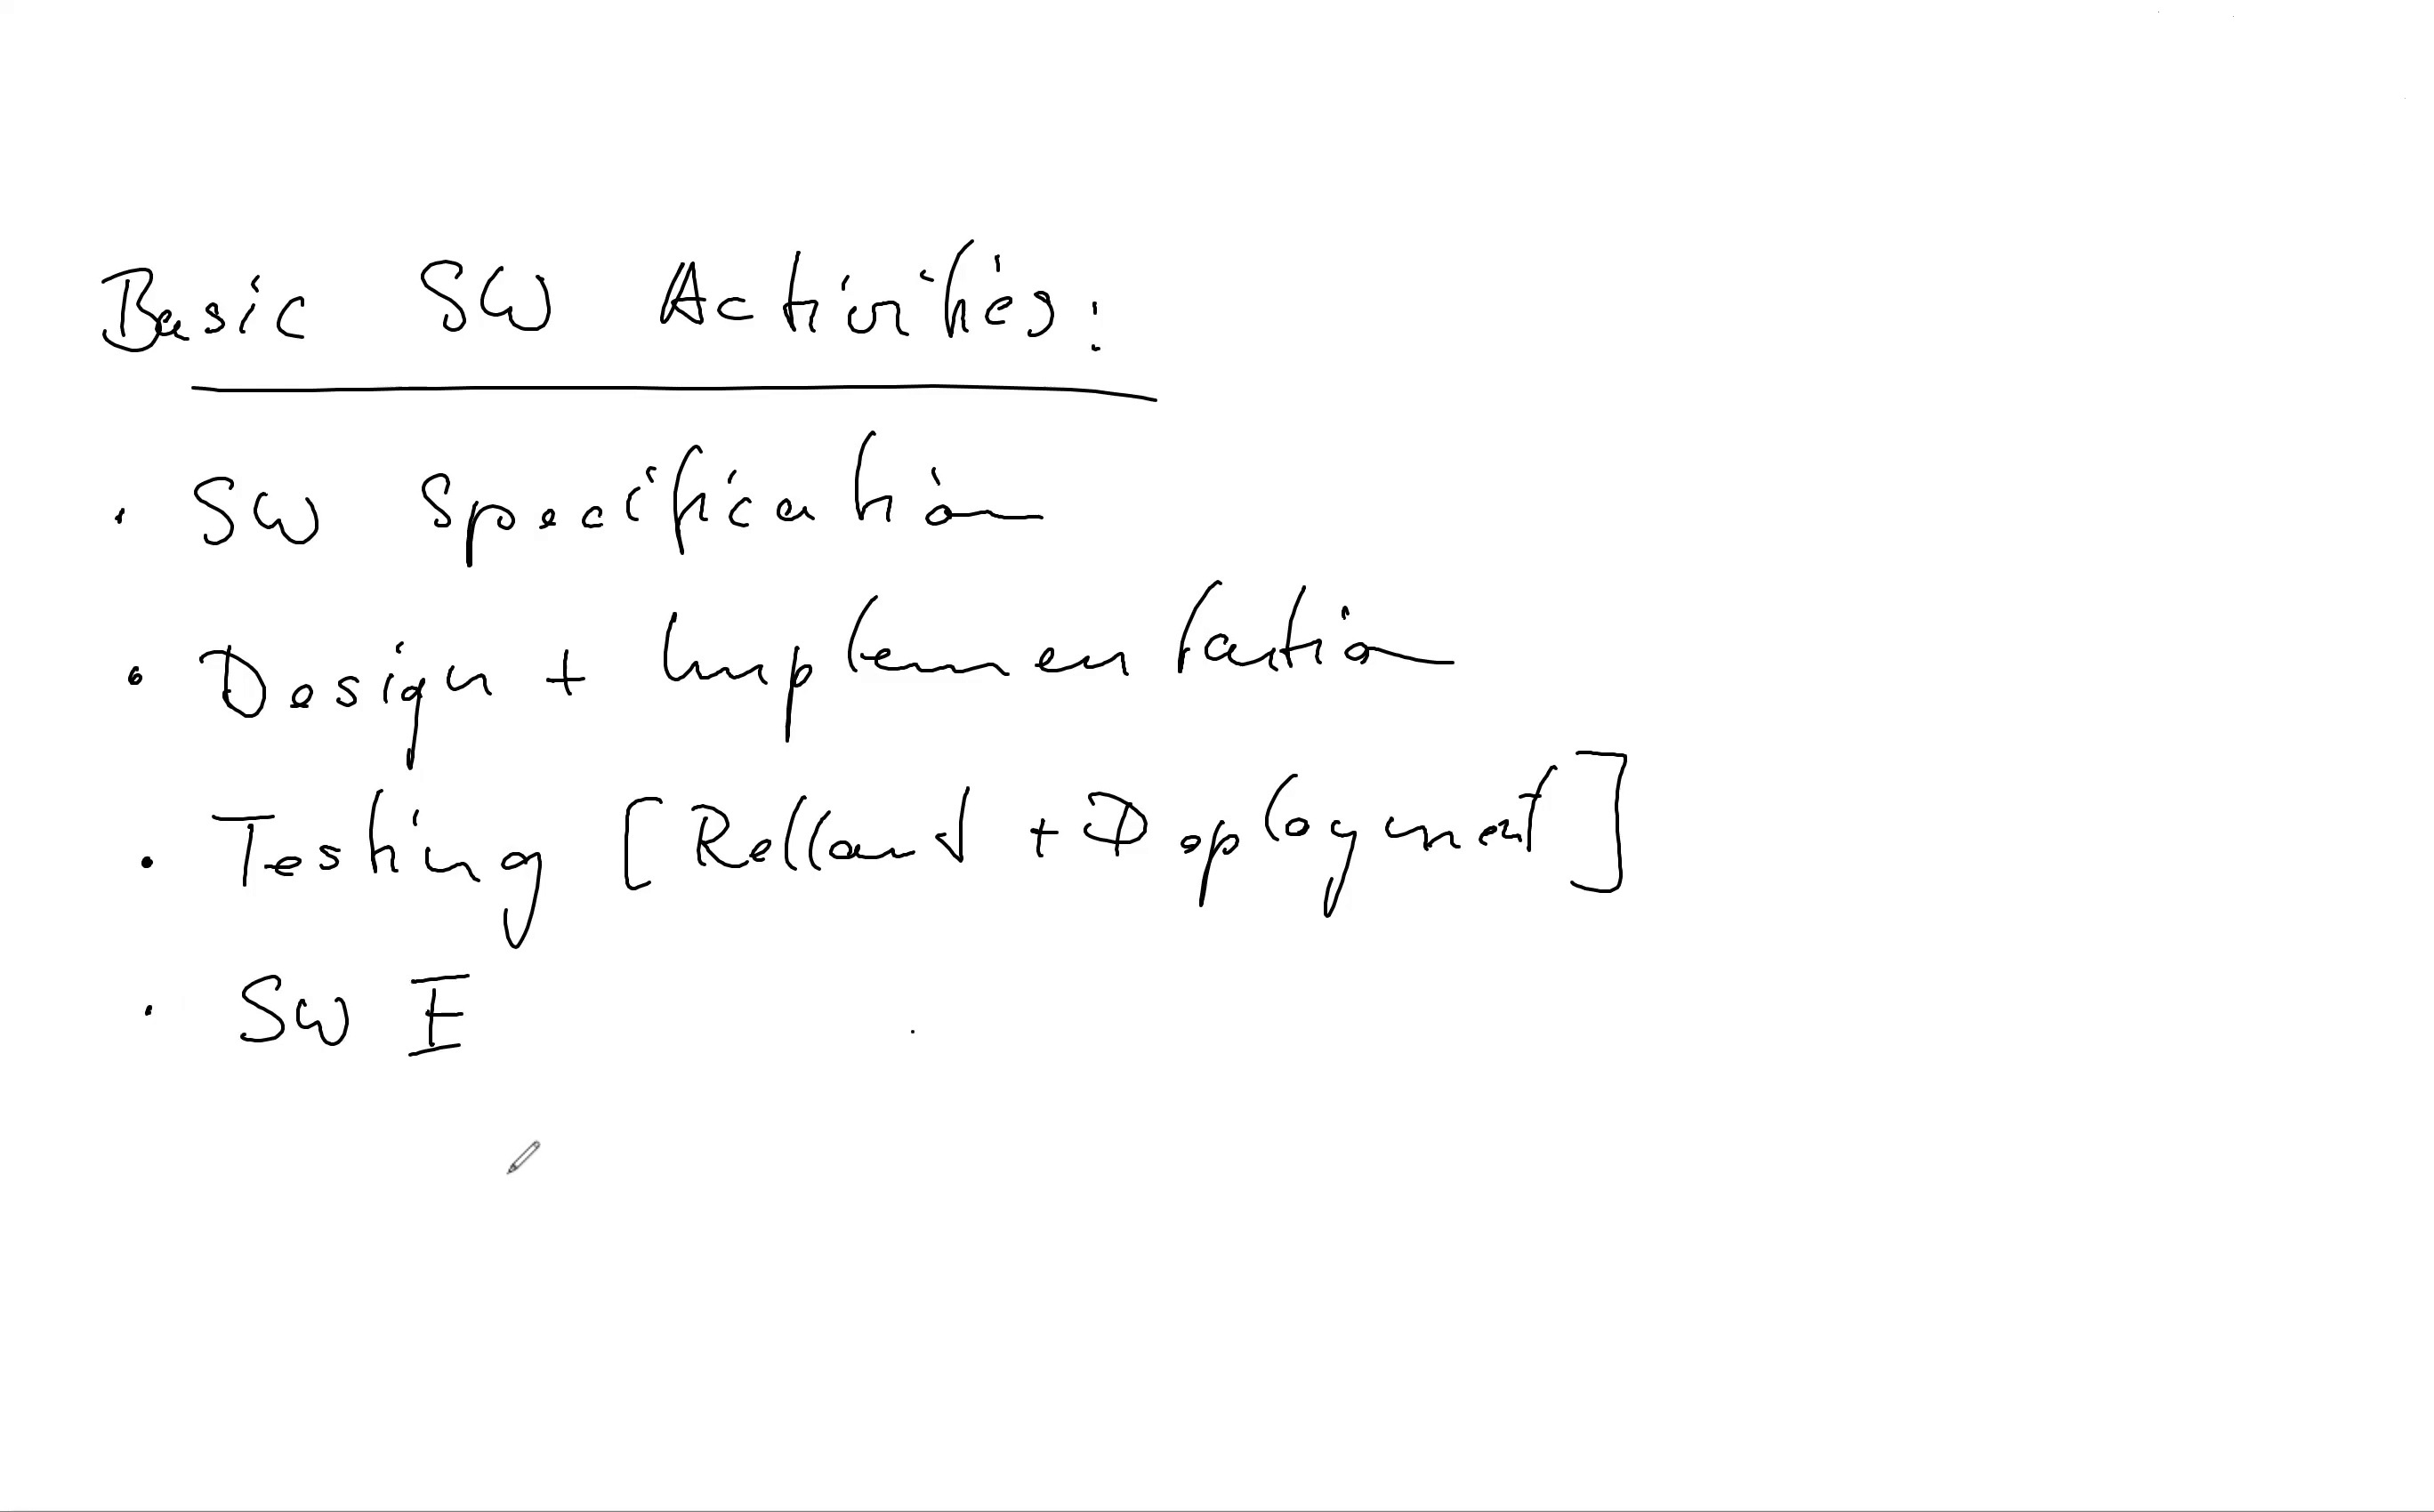 Basic SW Activities:
· SW Specification
· Design + Implementation
· Testing [Rollout + Deployment]
· SW E